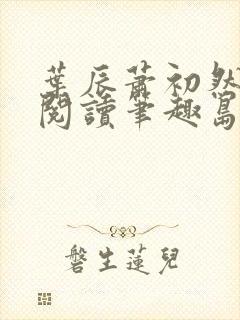 葉辰蕭初然
閱讀筆趣島
磐生蓮兒